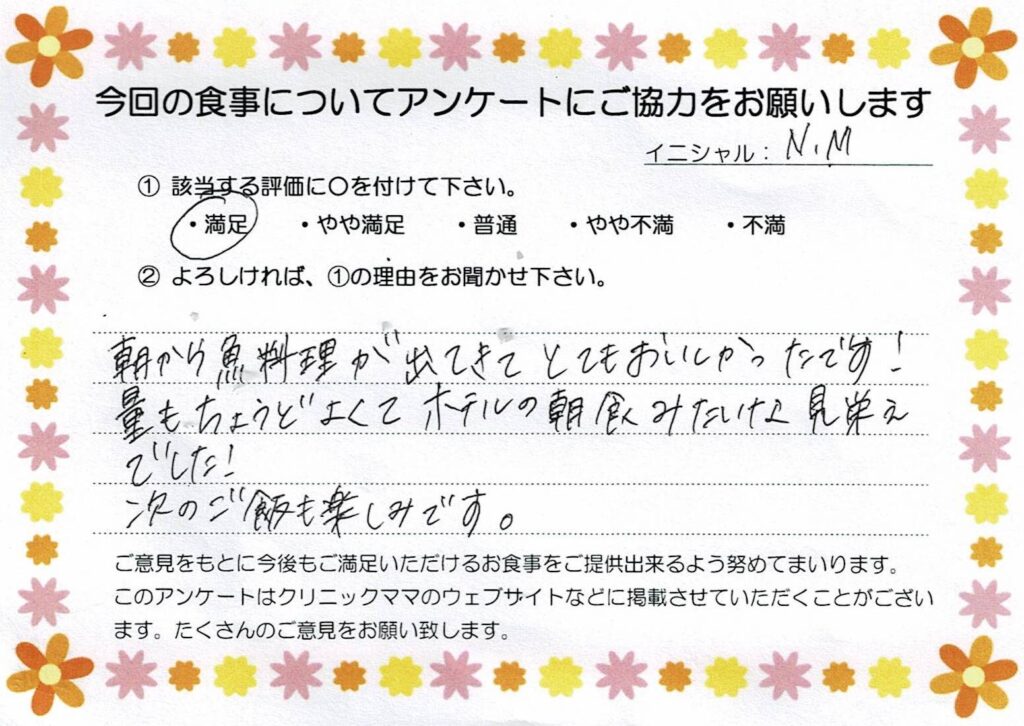 今回の食事についてアンケートにご協力をお願いします
イニシャル： N.M
① 該当する評価に〇を付けて下さい。
・満足 ・やや満足 ・普通 ・やや不満 ・不満
② よろしければ、①の理由をお聞かせ下さい。
朝から魚料理が出てきてとてもおいしかったです！
量もちょうどよくてホテルの朝食みたいな見栄え
でした！
次のご飯も楽しみです。
ご意見をもとに今後もご満足いただけるお食事をご提供出来るよう努めてまいります。
このアンケートはクリニックママのウェブサイトなどに掲載させていただくことがござい
ます。たくさんのご意見をお願い致します。